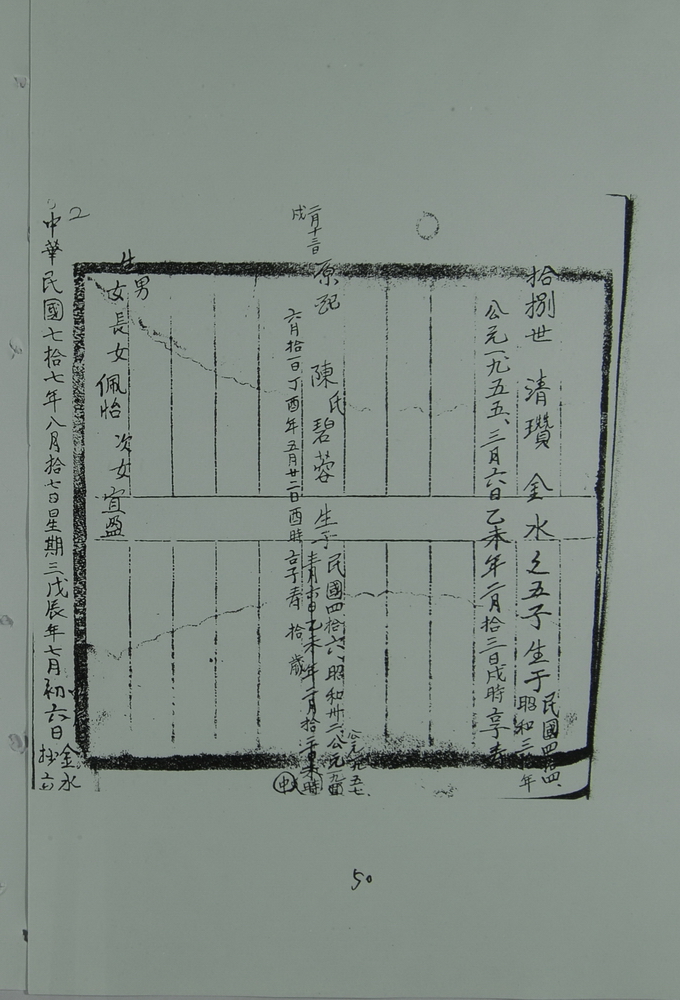 拾捌世 清瓚 金水之五子生于民國四拾四、昭和三十年
公元一九五五、三月六日乙未年二月拾三日戌時享壽
二月十三日
戌
原配 陳氏碧蓉 生于民國四拾六、昭和卅二公元
公元一九五七、
六月拾一日丁酉年五月廿二日酉時享壽 拾 歲
申
生男
女長女佩怡 次女宜盈
中華民國七拾七年八月拾七日星期三戊辰年七月初六日金水抄
2
50